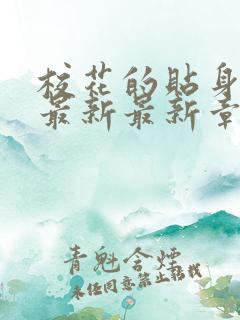 校花的贴身
最新最新章
青魁含煙
未经同意禁止转载